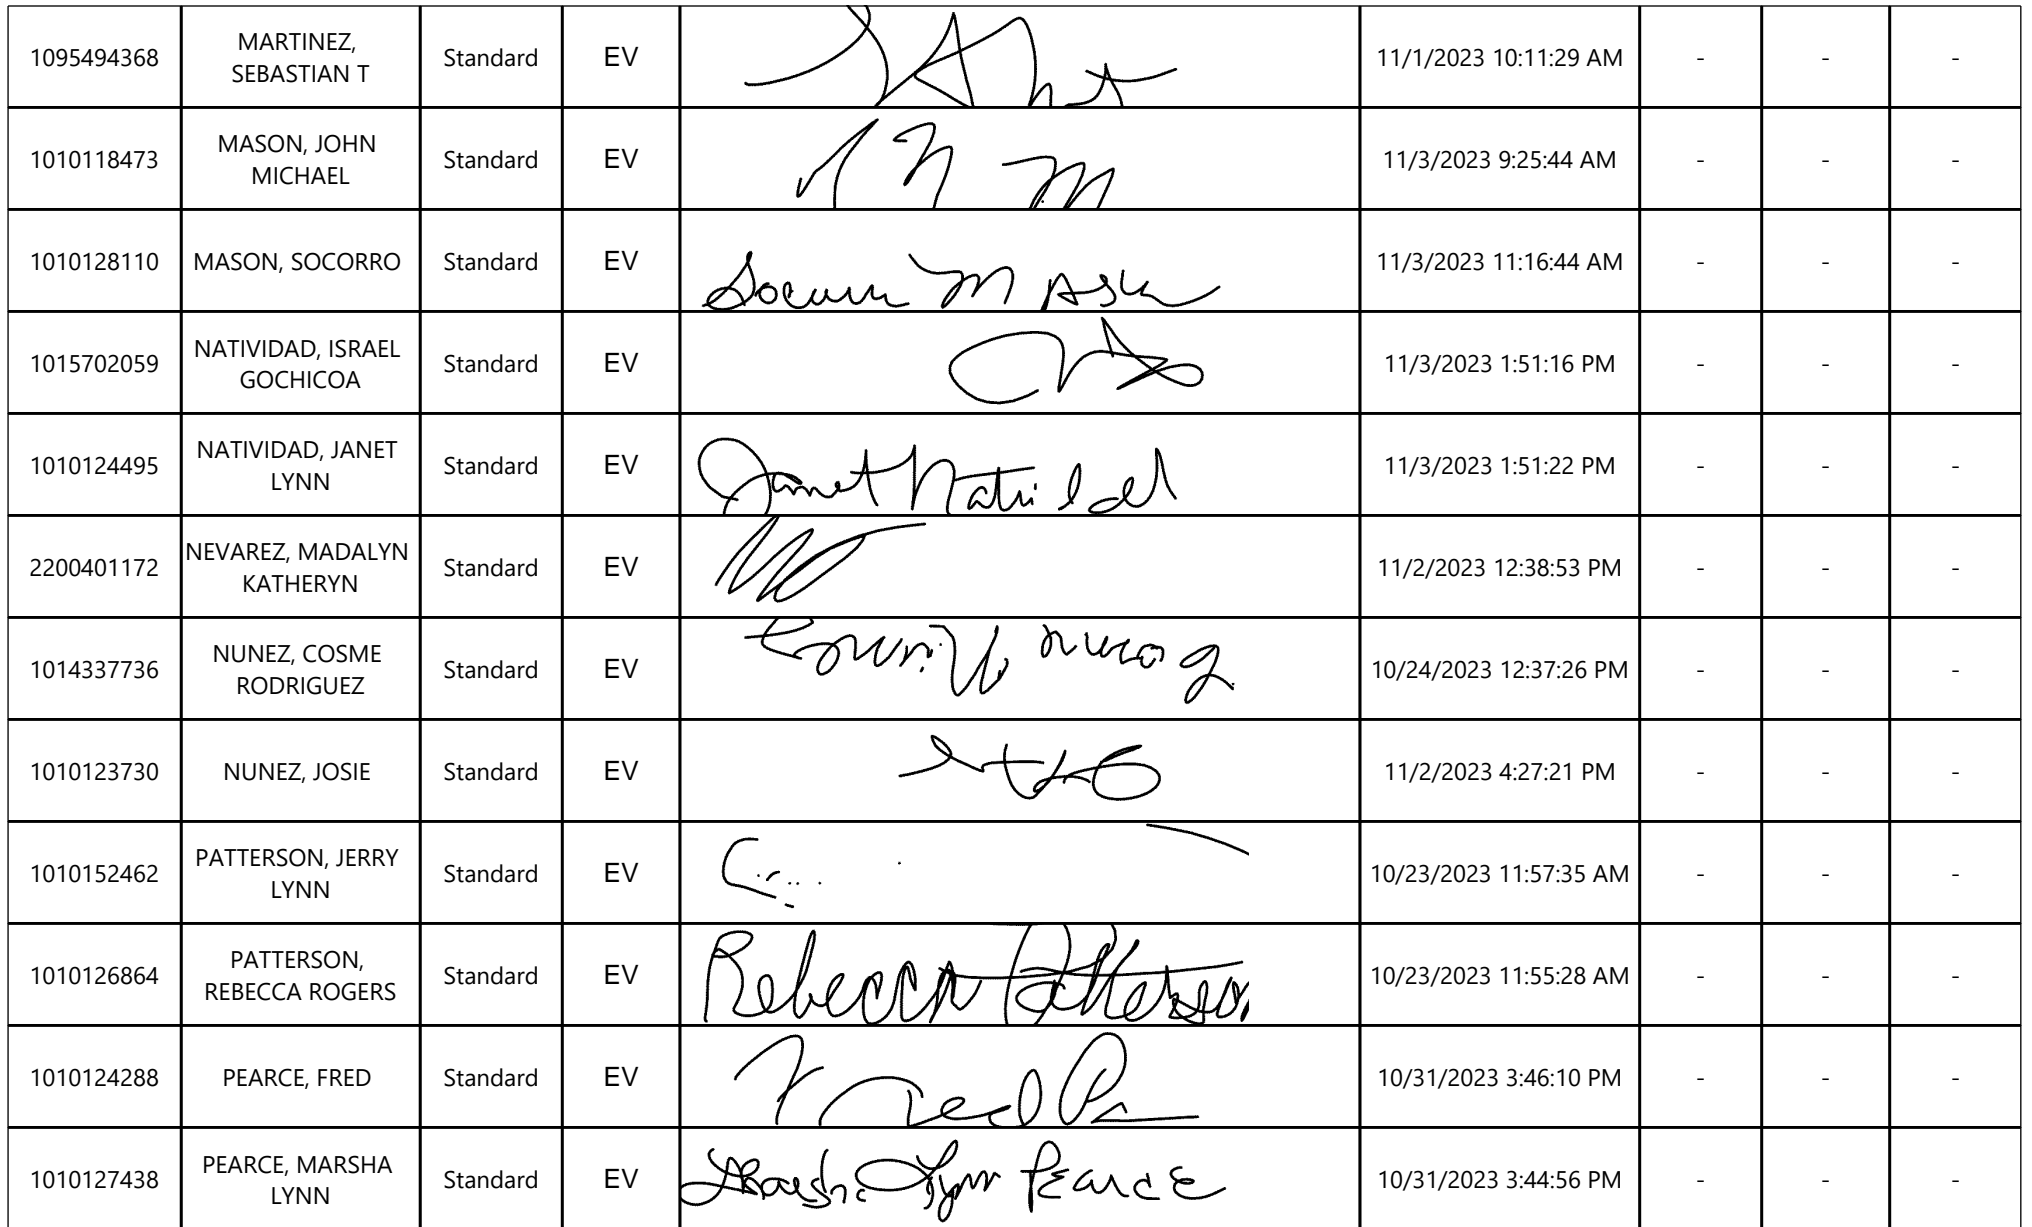 1095494368 MARTINEZ, SEBASTIAN T Standard EV 11/1/2023 10:11:29 AM - - -
1010118473 MASON, JOHN MICHAEL Standard EV 11/3/2023 9:25:44 AM - - -
1010128110 MASON, SOCORRO Standard EV 11/3/2023 11:16:44 AM - - -
1015702059 NATIVIDAD, ISRAEL GOCHICOA Standard EV 11/3/2023 1:51:16 PM - - -
1010124495 NATIVIDAD, JANET LYNN Standard EV Janet 11/3/2023 1:51:22 PM - - -
2200401172 NEVAREZ, MADALYN KATHERYN Standard EV 11/2/2023 12:38:53 PM - - -
1014337736 NUNEZ, COSME RODRIGUEZ Standard EV 10/24/2023 12:37:26 PM - - -
1010123730 NUNEZ, JOSIE Standard EV 11/2/2023 4:27:21 PM - - -
1010152462 PATTERSON, JERRY LYNN Standard EV 10/23/2023 11:57:35 AM - - -
1010126864 PATTERSON, REBECCA ROGERS Standard EV Rebecca Patterson 10/23/2023 11:55:28 AM - - -
1010124288 PEARCE, FRED Standard EV Fred 10/31/2023 3:46:10 PM - - -
1010127438 PEARCE, MARSHA LYNN Standard EV Marsha Lynn Pearce 10/31/2023 3:44:56 PM - - -